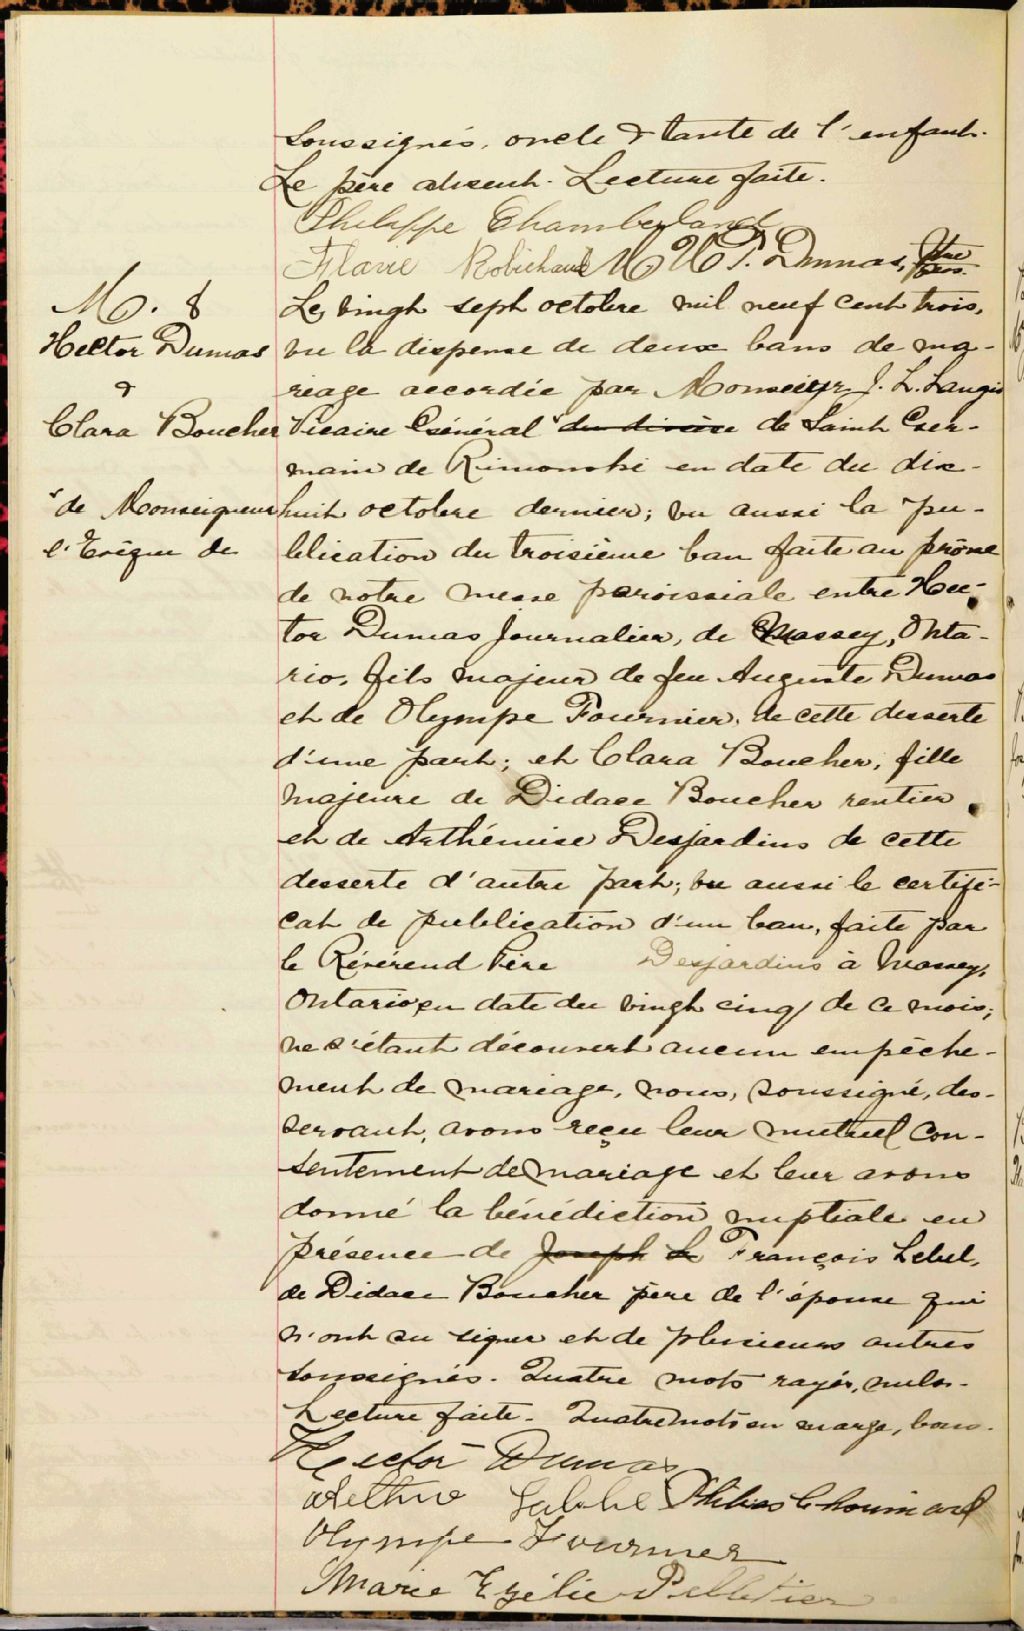 soussignés, oncle & tante de l'enfant.
Le père absent. Lecture faite.
Philippe Chamberland
Flavie Robichaud M. W. P. Dumas, Ptre
Le vingt sept octobre mil neuf cent trois,
M. 8
Hector Dumas
&
Clara Boucher
vu la dispense de deux bans de ma-
riage accordée par Monsieur J. L. Langis
Vicaire Général ˅ du diocèse de Saint Ger-
main de Rimouski en date du dix-
˅ de Monseigneur
l'Evêque de
huit octobre dernier; vu aussi la pu-
blication du troisième ban faite au prône
de notre messe paroissiale entre Hec-
tor Dumas Journalier, de Massey, Onta-
rio, fils majeur de feu Auguste Dumas
et de Olympe Fournier, de cette desserte
d'une part; et Clara Boucher, fille
majeure de Didace Boucher rentier
et de Arthémise Desjardins de cette
desserte d'autre part; vu aussi le certifi-
cat de publication d'un ban, faite par
le Révérend Père Desjardins à Massey,
Ontario, en date du vingt cinq de ce mois;
ne s'étant découvert aucun empêche-
ment de mariage, nous, soussigné, des-
servant, avons reçu leur mutuel con-
sentement de mariage et leur avons
donné la bénédiction nuptiale en
présence de Joseph Le François Lebel,
de Didace Boucher père de l'épouse qui
n'ont su signer et de plusieurs autres
soussignés. Quatre mots rayés, nuls.
Lecture faite. Quatre mots en marge, bons.
Hector Dumas
Philias Chouinard
Olympe Fournier
Marie Exélie Pelletier